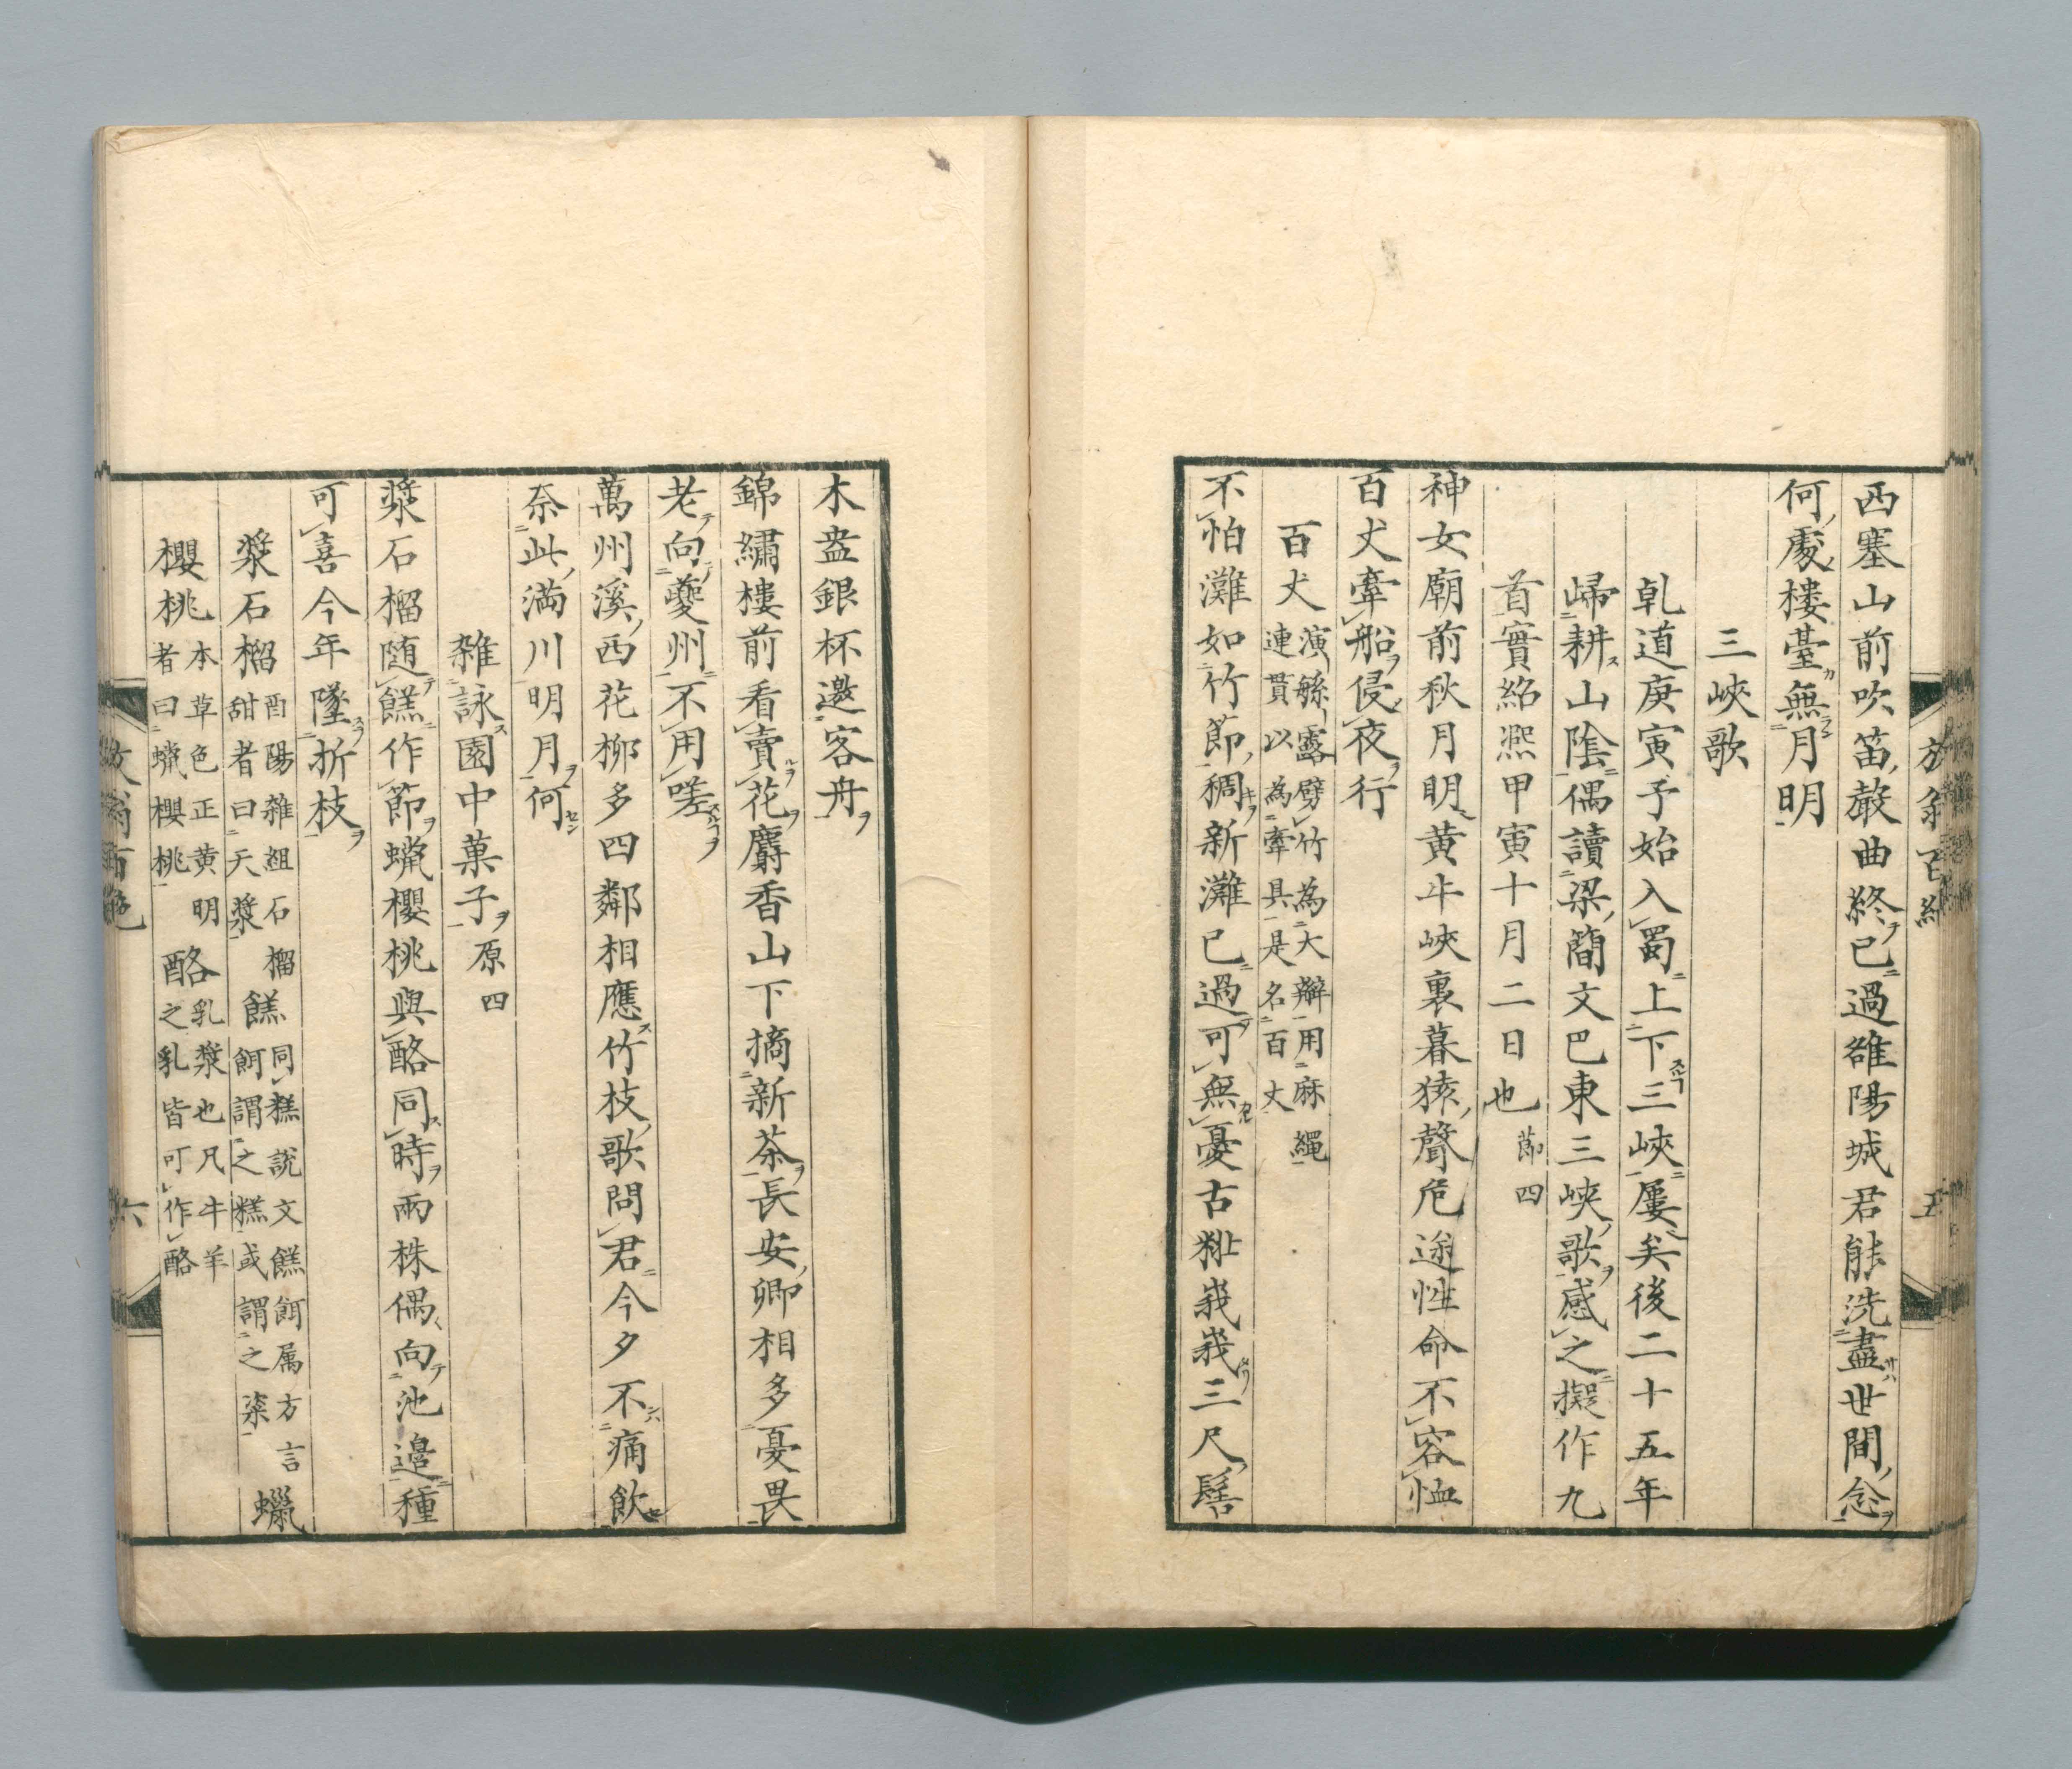 西塞山前吹笛聲曲終已過雒陽城君能洗盡世間念
何處樓臺無月明
三峽歌
乹道庚寅予始入蜀上下三峽屢矣後二十五年
歸耕山陰偶讀梁簡文巴東三峽歌感之擬作九
首實紹熙甲寅十月二日也 節四
神女廟前秋月明黄牛峽裏暮猿聲危途性命不容恤
百丈牽船侵夜行
百丈 演繁露劈竹為大辮用麻繩
連貫以為牽具是名百丈
不怕灘如竹節稠新灘已過可無憂古㹨峩峩三尺髻
木盎銀杯邀客舟
錦繡樓前看賣花麝香山下摘新茶長安卿相多憂畏
老向夔州不用嗟
萬州溪西花柳多四鄰相應竹枝歌問君今夕不痛飲
奈此滿川明月何
雑詠園中菓子 原四
漿石榴随餻作節蠟櫻桃與酪同時兩株偶向池邊種
可喜今年墜折枝
漿石榴 酉陽雑俎石榴
甜者曰天漿
餻 同糕説文餻餌属方言
餌謂之糕或謂之粢
蠟
櫻桃 本草色正黄明
者曰蠟櫻桃
酪 乳漿也凡牛羊
之乳皆可作酪
六